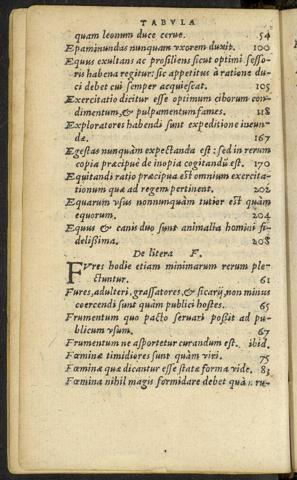 TABVLA
quam leonum duce cerue. 54
Epaminundas nunquam vxorem duxit. 100
Equus exultans ac prosiliens sicut optimi sesso-
ris habena regitur: sic appetitus à ratione du-
ci debet cui semper acquiescat. 105
Exercitatio dicitur esse optimum ciborum con-
dimentum, & pulpamentum fames. 118
Exploratores habendi sunt expeditione ineun-
da. 167
Egestas nunquàm expectanda est: sed in rerum
copia præcipuè de inopia cogitandũ est. 170
Equitandi ratio præcipua est omnium exercita-
tionum quæ ad regem pertinent. 202
Equarum vsus nonnunquàm tutior est quàm
equorum. 204
Equus & canis duo sunt animalia homini fi-
delißima. 208
De litera F.
FVres hodie etiam minimarum rerum ple-
ctuntur. 61
Fures, adulteri, grassatores, & sicarij, non minus
coercendi sunt quàm publici hostes. 65
Frumentum quo pacto seruari poßit ad pu-
blicum vsum. 67
Frumentum ne asportetur curandum est. ibid.
Fœminæ timidiores sunt quàm viri. 75
Fœminæ quæ dicantur esse statæ formæ vide. 83
Fœmina nihil magis formidare debet quàm ru-